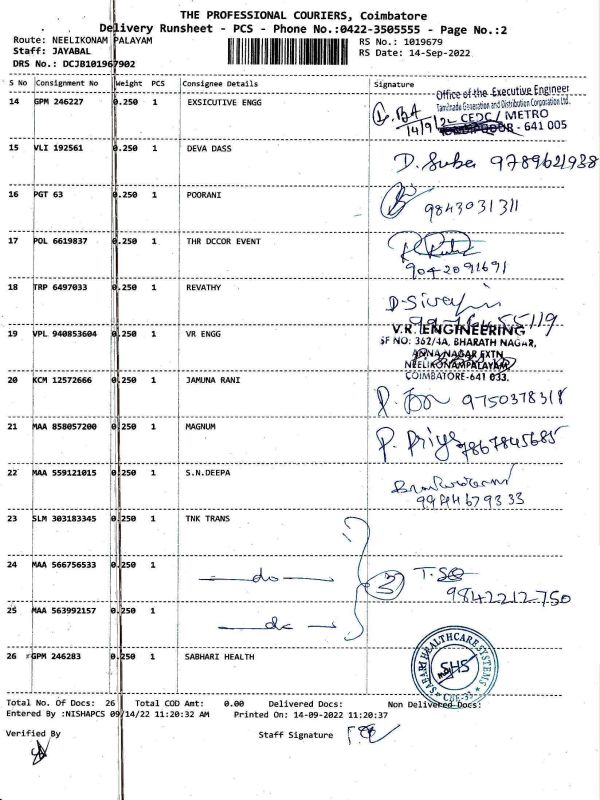 THE PROFESSIONAL COURIERS, Coimbatore
Delivery Runsheet - PCS - Phone No.:0422-3505555 - Page No.:2
Route: NEELIKONAM PALAYAM
RS No.: 1019679
Staff: JAYABAL
RS Date: 14-Sep-2022
DRS No.: DCJB101967902
S No Consignment No Weight PCS Consignee Details Signature
14 GPM 246227 0.250 1 EXSICUTIVE ENGG
Office of the Executive Engineer
Tamilnadu Generation and Distribution Corporation Ltd.
CEDC / METRO
14/9/22
- 641 005
15 VLI 192561 0.250 1 DEVA DASS
D. Suba 9789621938
16 PGT 63 0.250 1 POORANI
9843031311
17 POL 6619837 0.250 1 THR DCCOR EVENT
9042091691
18 TRP 6497033 0.250 1 REVATHY
19 VPL 940853604 0.250 1 VR ENGG
V.R. ENGINEERING
SF NO: 362/4A, BHARATH NAGAR,
ANNA NAGAR EXTN,
NEELIKONAMPALAYAM,
COIMBATORE-641 033.
20 KCM 12572666 0.250 1 JAMUNA RANI
9750378318
21 MAA 858057200 0.250 1 MAGNUM
P. Priya 7867845685
22 MAA 559121015 0.250 1 S.N.DEEPA
9944679333
23 SLM 303183345 0.250 1 TNK TRANS
24 MAA 566756533 0.250 1
do
3
9842212750
25 MAA 563992157 0.250 1
do
26 GPM 246283 0.250 1 SABHARI HEALTH
SABARI HEALTHCARE SYSTEMS
SHS
CBE-33
Total No. Of Docs: 26 Total COD Amt: 0.00 Delivered Docs: Non Delivered Docs:
Entered By :NISHAPCS 09/14/22 11:20:32 AM Printed On: 14-09-2022 11:20:37
Verified By
Staff Signature